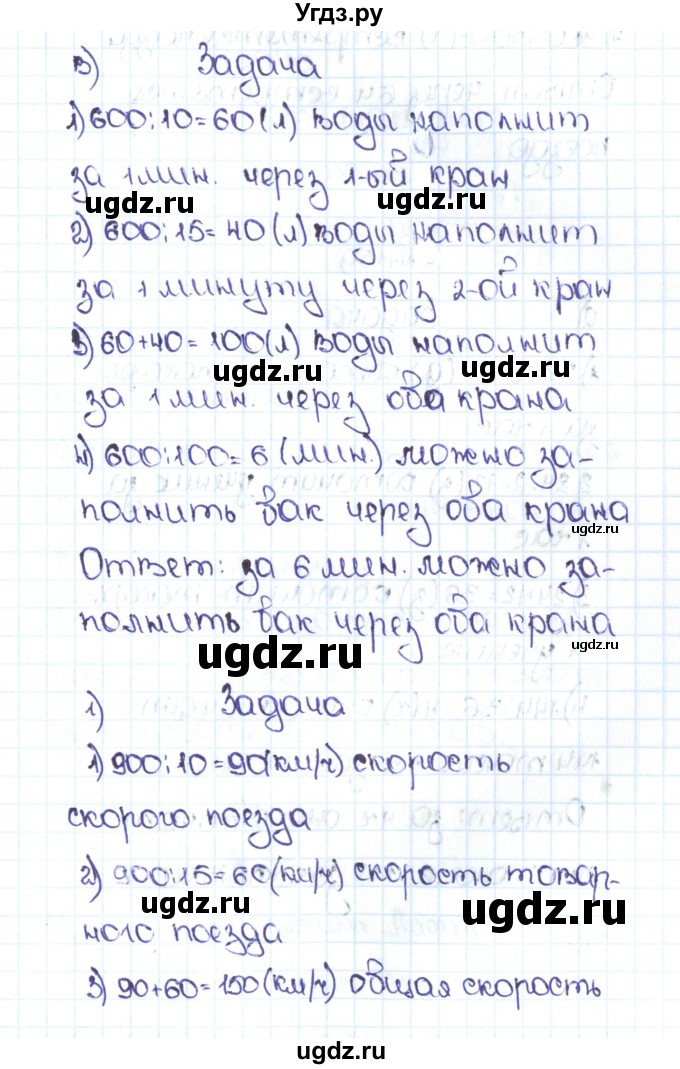 Угдз.ру
в) Задача
1) 600:10=60(л) воды наполнит
за 1 мин. через 1-ый кран
ugdz.ru ugdz.ru
2) 600:15=40(л) воды наполнит
за 1 минуту через 2-ой кран
3) 60+40=100(л) воды наполнит
ugdz.ru ugdz.ru
за 1 мин. через оба крана
4) 600:100=6(мин.) можно за-
полнить бак через оба крана
ugdz.ru
Ответ: за 6 мин. можно за-
полнить бак через оба крана
ugdz.ru ugdz.ru
1) Задача
ugdz.ru
1) 900:10=90(км/ч) скорость
скорого поезда
2) 900:15=60(км/ч) скорость товар-
ugdz.ru ugdz.ru
ного поезда
3) 90+60=150(км/ч) общая скорость
ugdz.ru